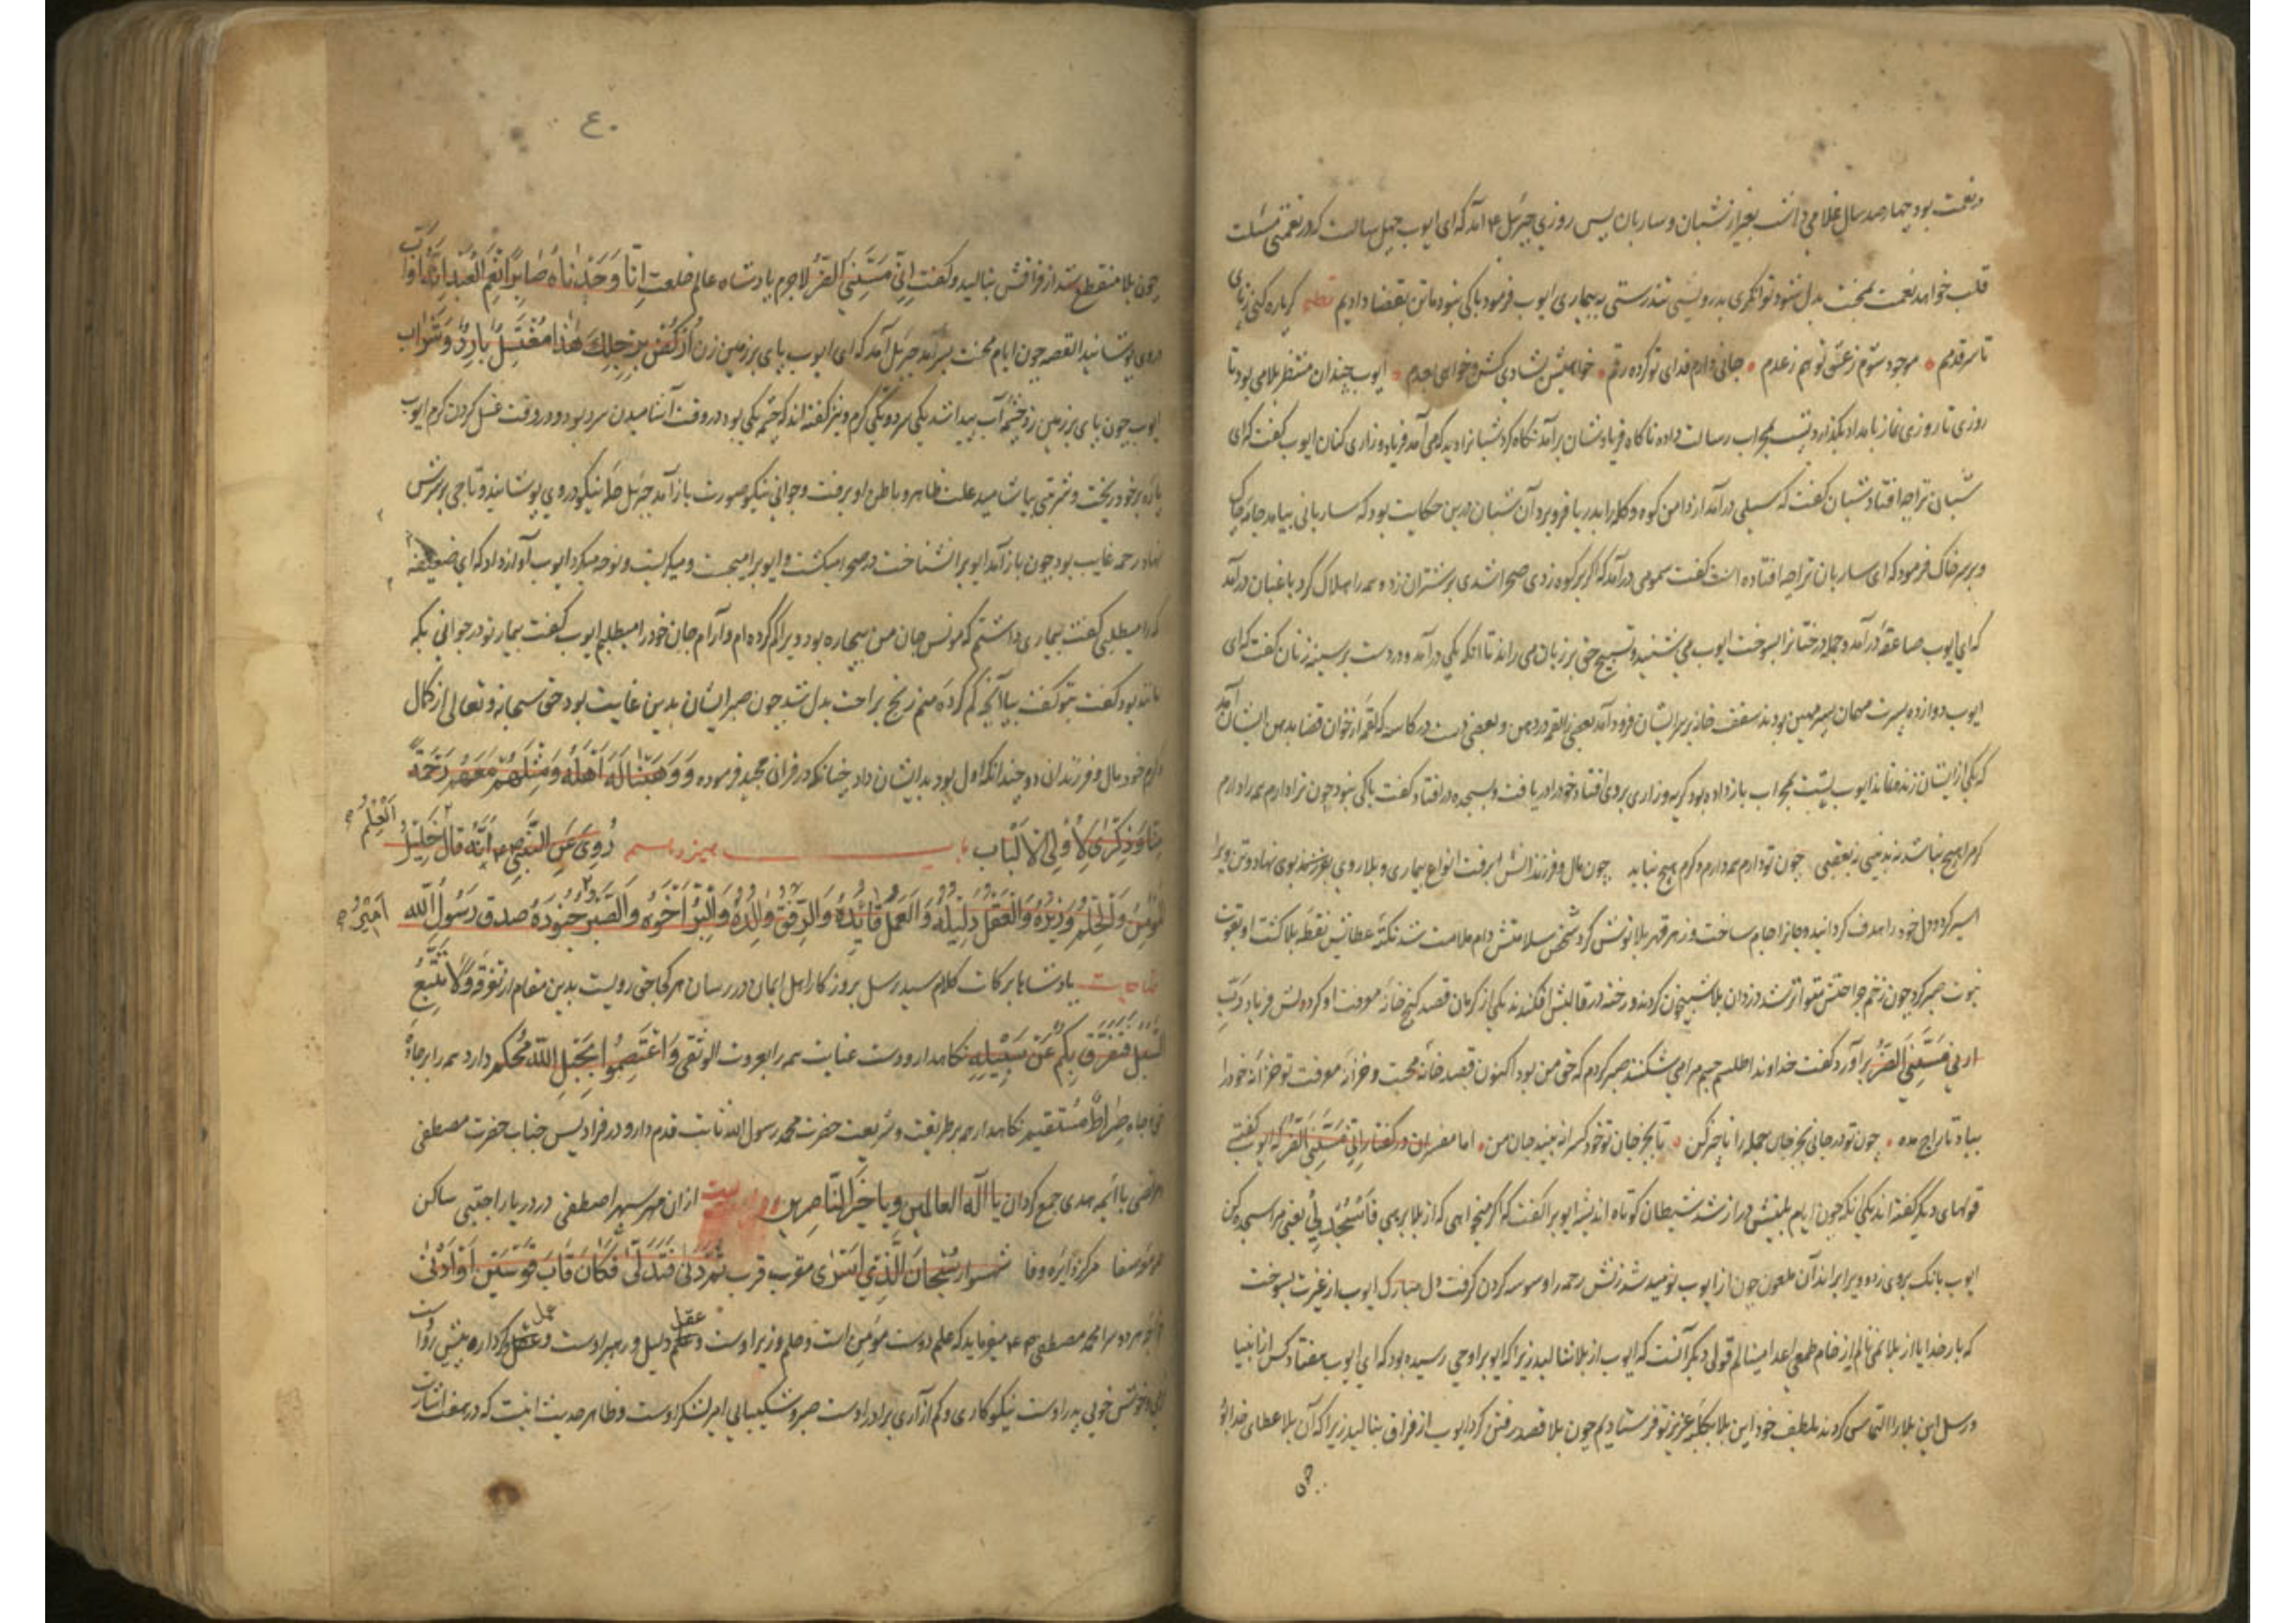 در نعمت بود چهارصد سال غلامی داشت بغیر از شبان و ساربان پس روزی جبرئیل ع آمد که ای ایوب چهل سالست که در نعمتی
قلب خواهد نعمت بمحنت بدل شود توانگری بدرویشی تندرستی به بیماری ایوب فرمود باکی نبود ما تن بقضا دادیم نظم گر پاره کنی ز پای
تا سر قدمم موجود شوم ز عشق تو هم ز عدم جانی دارم فدای تو کرده رقم خواهیش بشادی کش و خواهی بغم ایوب چندان منتظر بلا می بود تا
روزی تا روزی نماز بامداد بگذارد پشت بمحراب رسالت داده ناگاه فریادشان برآمد نگاه کرد شبانرا دید که می آمد فریاد و زاری کنان ایوب گفت که ای
شبان ترا چه افتاد شبان گفت که سیلی درآمد از دامن کوه و گله را بدریا فرو برد آن شبان درین حکایت بود که ساربانی بیامد جامه چاک
و بر سر خاک فرمود که ای ساربان ترا چه افتاده است گفت سمومی درآمد که اگر بر کوه زدی صحرا شدی بر شتران زد و همه را هلاک کرد باغبان درآمد
که ای ایوب صاعقه درآمد و جمله درختانرا بسوخت ایوب می شنید و تسبیح حق بر زبان می راند تا آنکه یکی درآمد و دست بر سینه زنان گفت که ای
ایوب دوازده پسرت مهمان پسر مهین بودند سقف خانه بر سر ایشان فرود آمد بعضی را لقمه در دهن و بعضی دست در کاسه که لقمه از خوان قضا بدهن ایشان آمد
که یکی از ایشان زنده نماند ایوب پشت بمحراب باز داده بود گریه و زاری بر وی افتاد خود را دریافت و بسجده در افتاد گفت باکی نبود چون ترا دارم همه را دارم
گو مرا هیچ نباشد چون تو دارم همه دارم دگرم هیچ نباید چون مال و فرزندانش برفت انواع بیماری و بلا روی بوی نهاد و تن ویرا
اسیر کرد و دل خود را هدف گردانید و جانرا جام ساخت و زهر قهر بلا نوش کرد شخص سلامتش دام ملامت شد نکته عطایش نقطه بلا گشت او بقوت
نبوت صبر کرد چون زخم جراحتش متواتر شد دزدان بلا شبیخون کردند و رخنه در قالبش افکندند یکی از کرمان قصد گنج خانه معرفت او کرد پس فریاد رب
انی مسنی الضر برآورد گفت خداوندا طلسم جسم مرا می شکنند صبر کردم که حق من بود اکنون قصد خانه محبت و خزانه معرفت تو خزانه خود را
بباد تاراج مده چون تو در جانی بجز جان جمله را تاخیر کن تا بجز جان تو خود کس را نبیند جان من اما مفسران در گفتار انی مسنی الضر که ایوب گفتی
قولهای دیگر گفته اند یکی آنکه چون ایام بلیتش دراز شد شیطان کوتاه اندیشه ایوب را گفت که اگر میخواهی که از بلا برهی فاسجد لی یعنی مرا سجده کن
ایوب بانگ بروی زد و ویرا براند آن ملعون چون از ایوب نومید شد زنش رحمه را وسوسه کردن گرفت دل مبارک ایوب از غیرت بسوخت
که بار خدایا از بلا نمی نالم از خام طمعی اعدا مینالم قولی دیگر آنست که ایوب از بلا ننالید زیرا که ایوب را وحی رسیده بود که ای ایوب هفتاد کس از انبیا
و رسل این بلا را التماس کردند بلطف خود این بلا بکلبه عزیز تو فرستادیم چون بلا قصد رفتن کرد ایوب از فراق بنالید زیرا که آن بلا عطای خدا بود
چون
۴۰
چون بلا منقطع شد از فراقش بنالید و گفت انی مسنی الضر لاجرم پادشاه عالم خلعت إِنَّا وَجَدْنَاهُ صَابِرًا نِعْمَ الْعَبْدُ إِنَّهُ أَوَّابٌ
در وی پوشانید القصه چون ایام محنت بسر آمد جبرئیل آمد که ای ایوب پای بر زمین زن أُرْكُضْ بِرِجْلِكَ هَذَا مُغْتَسَلٌ بَارِدٌ وَشَرَابٌ
ایوب چون پای بر زمین زد چشمه آب پیدا شد یکی سرد و یکی گرم و نیز گفته اند که چشمه یکی بود در وقت آشامیدن سرد بود و در وقت غسل کردن گرم ایوب
پاره بر خود ریخت و شربتی بیاشامید علت ظاهر و باطن او برفت و جوانی نیکو صورت باز آمد جبرئیل حله نیکو در وی پوشانید و تاجی بر سرش
نهاد رحمه غایب بود چون باز آمد ایوب را نشناخت در صحرا میگشت و ایوب را میجست و میگریست و نوحه میکرد ایوب آواز داد که ای ضعیفه
که را میطلبی گفت بیماری داشتم که مونس جان من بیچاره بود ویرا گم کرده ام و آرام جان خود را میطلبم ایوب گفت بیمار تو در جوانی بکه
مانند بود گفت بتو گفت بیا آنچه گم کرده منم رنج براحت بدل شد چون صبر ایشان بدین غایت بود حق سبحانه و تعالی از کمال
کرم خود مال و فرزندان دو چندانکه اول بود بدایشان داد چنانکه در قرآن مجید فرموده وَوَهَبْنَا لَهُ أَهْلَهُ وَمِثْلَهُمْ مَعَهُمْ رَحْمَةً
مِنَّا وَذِكْرَى لِأُولِي الْأَلْبَاب باب سیزدهم رُوِيَ عَنِ النَّبِيِّ أَنَّهُ قَالَ خَلِيلُ
الْعِلْمُ
الْمُؤْمِنِ وَالْحِلْمُ وَزِيرُهُ وَالْعَقْلُ دَلِيلُهُ وَالْعَمَلُ قَائِدُهُ وَالرِّفْقُ وَالِدُهُ وَالْبِرُّ أَخُوهُ وَالصَّبْرُ جُنُودُهُ صدق رَسُولُ اللّه
أَمِيرُ
مناجات پادشاها برکات کلام سید رسل بروزگار اهل ایمان در رسان هر کجا حق رویست بدین مقام از تفرقه وَلَا تَتَّبِعُوا
السُّبُلَ فَتَفَرَّقَ بِكُمْ عَنْ سَبِيلِهِ نگاهدار و دست عنایت همه را بعروت الوثقی وَاعْتَصِمُوا بِحَبْلِ اللّهِ محکم دار و همه را بر جاده
صِرَاطٌ مُسْتَقِيم نگاهدار همه بر طریقت و شریعت حضرت محمد رسول الله ثابت قدم دار و در فرادیس جناب حضرت مصطفی
مرتضی با ائمه هدی جمع گردان يا اله العالمين ويا خير الناصرين ازان مهر سپهر اصطفی در دریا راجتبی ساکن
مرکز دایره وفا شهسوار سُبْحَانَ الَّذِي أَسْرَى مقرب قرب ثُمَّ دَنَى فَتَدَلَّى فَكَانَ قَابَ قَوْسَيْنِ أَوْ أَدْنَى
محمد مصطفی ص میفرماید که علم دوست مؤمن است و حلم وزیر اوست و عقل دلیل و رهبر اوست و عمل و کردار پیش رو اوست
و خوش خویی پدر اوست نیکوکاری و کم آزاری برادر اوست صبر و شکیبایی امیر لشکر اوست و ظاهر حدیث اینست که در معنی اشارت